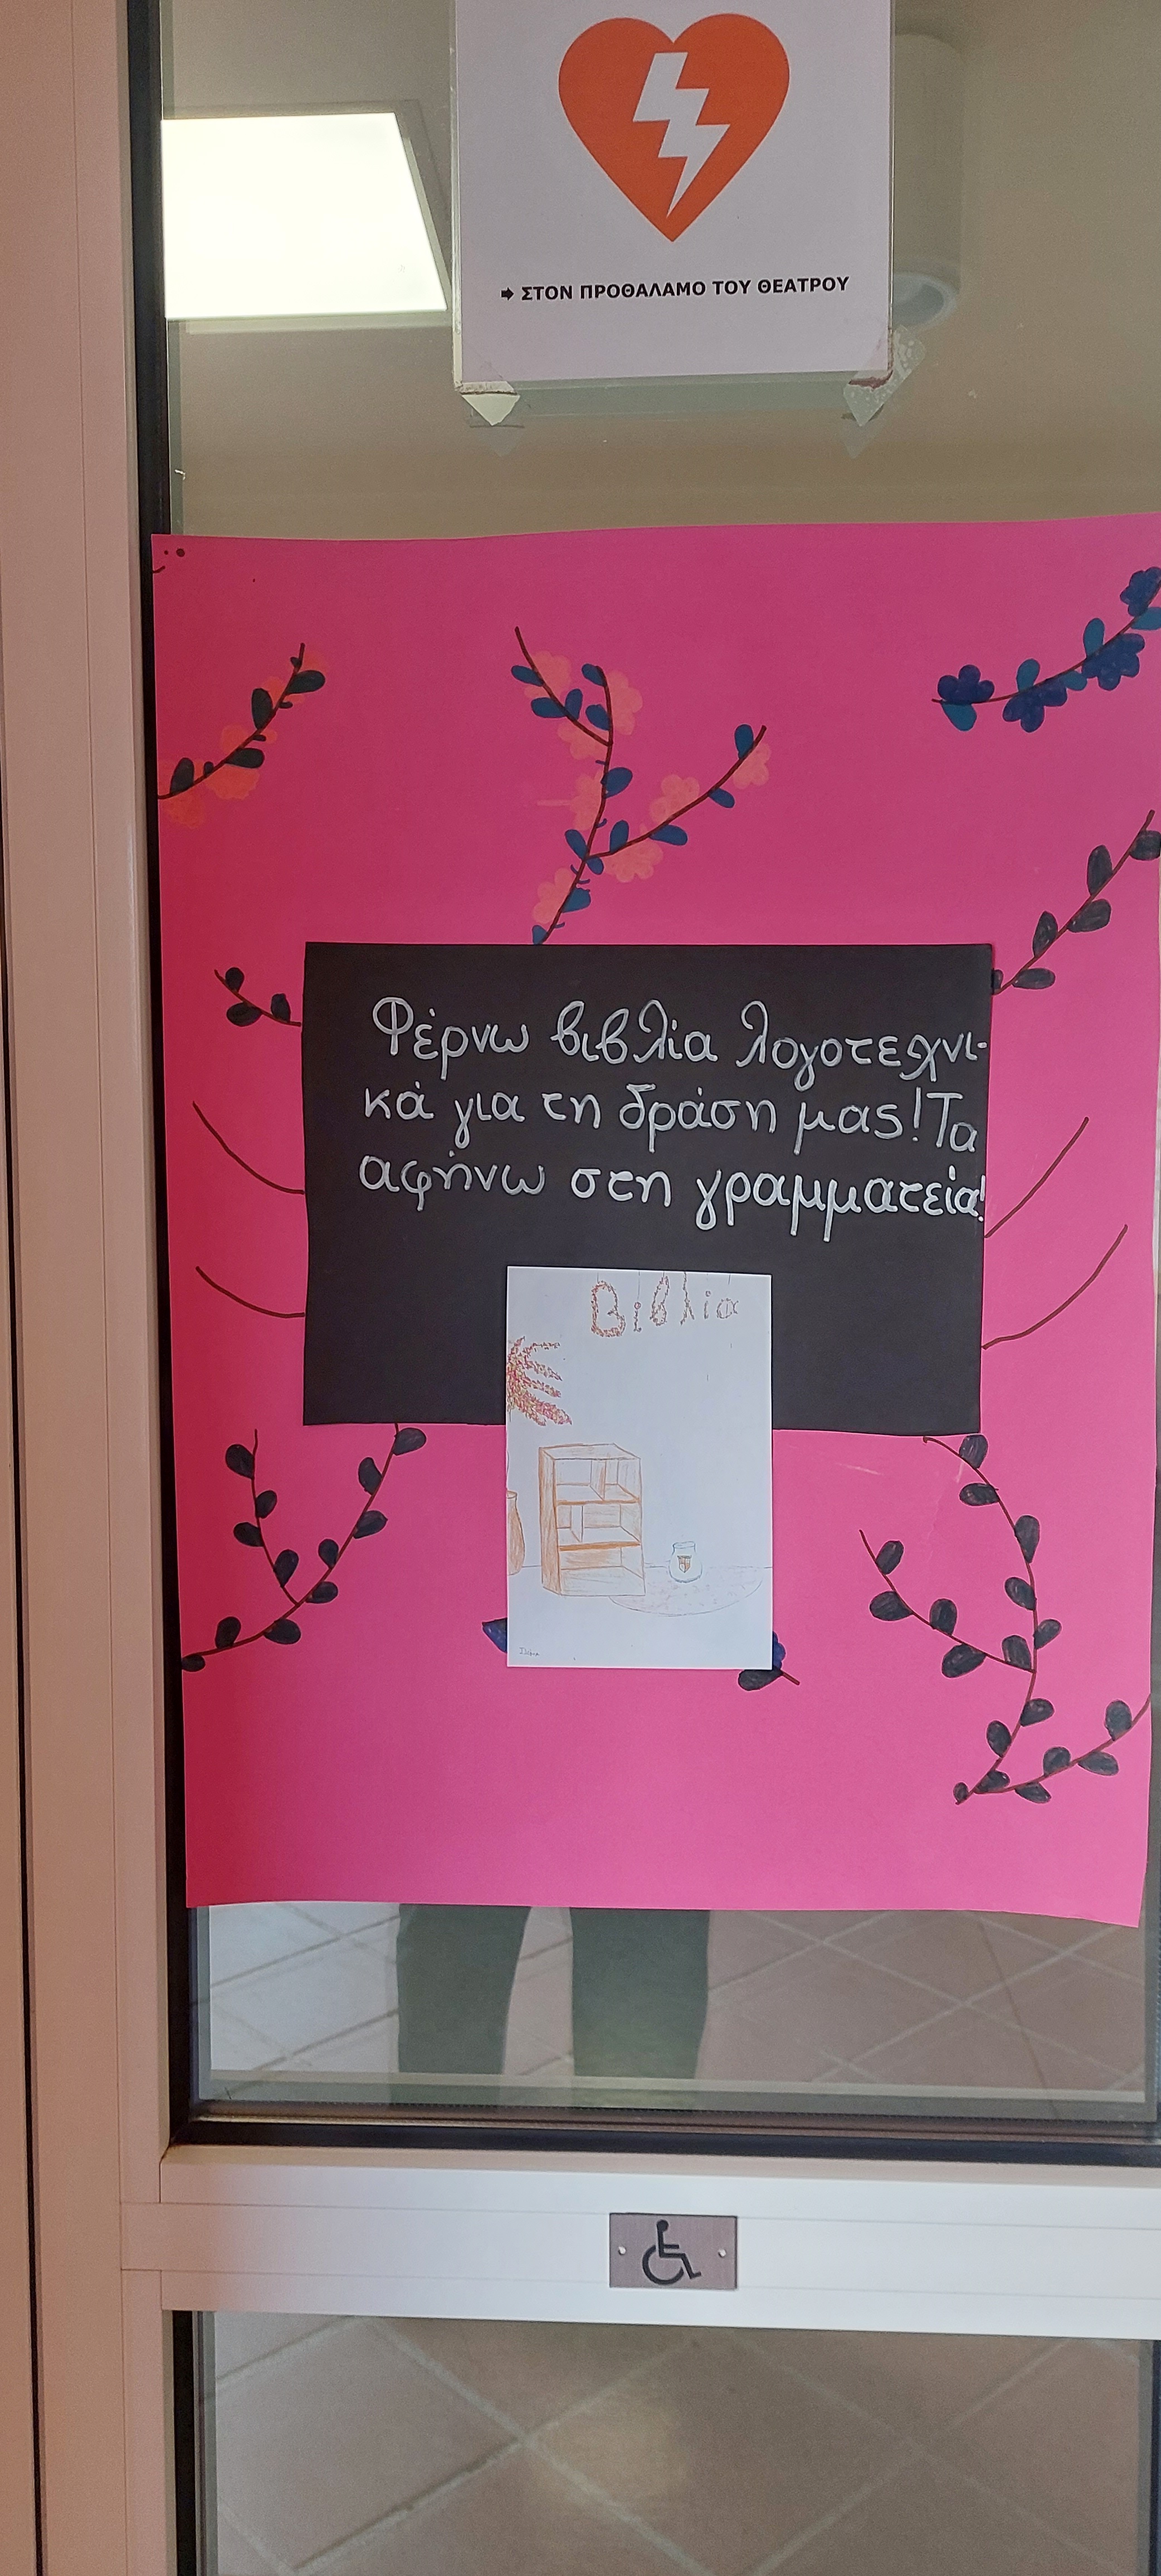 ➡ ΣΤΟΝ ΠΡΟΘΑΛΑΜΟ ΤΟΥ ΘΕΑΤΡΟΥ
Φέρνω βιβλία λογοτεχνι-
κά για τη δράση μας! Τα
αφήνω στη γραμματεία!
Βιβλία